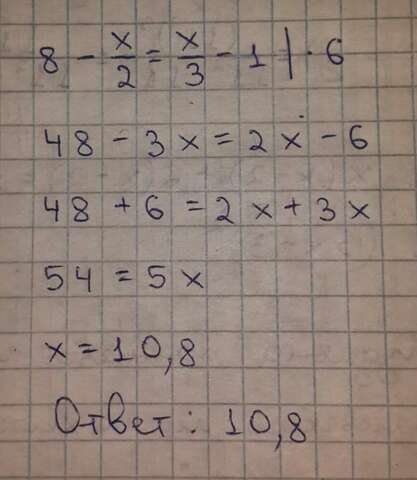 8 - x/2 = x/3 - 1 | · 6
48 - 3x = 2x - 6
48 + 6 = 2x + 3x
54 = 5x
x = 10,8
Ответ: 10,8